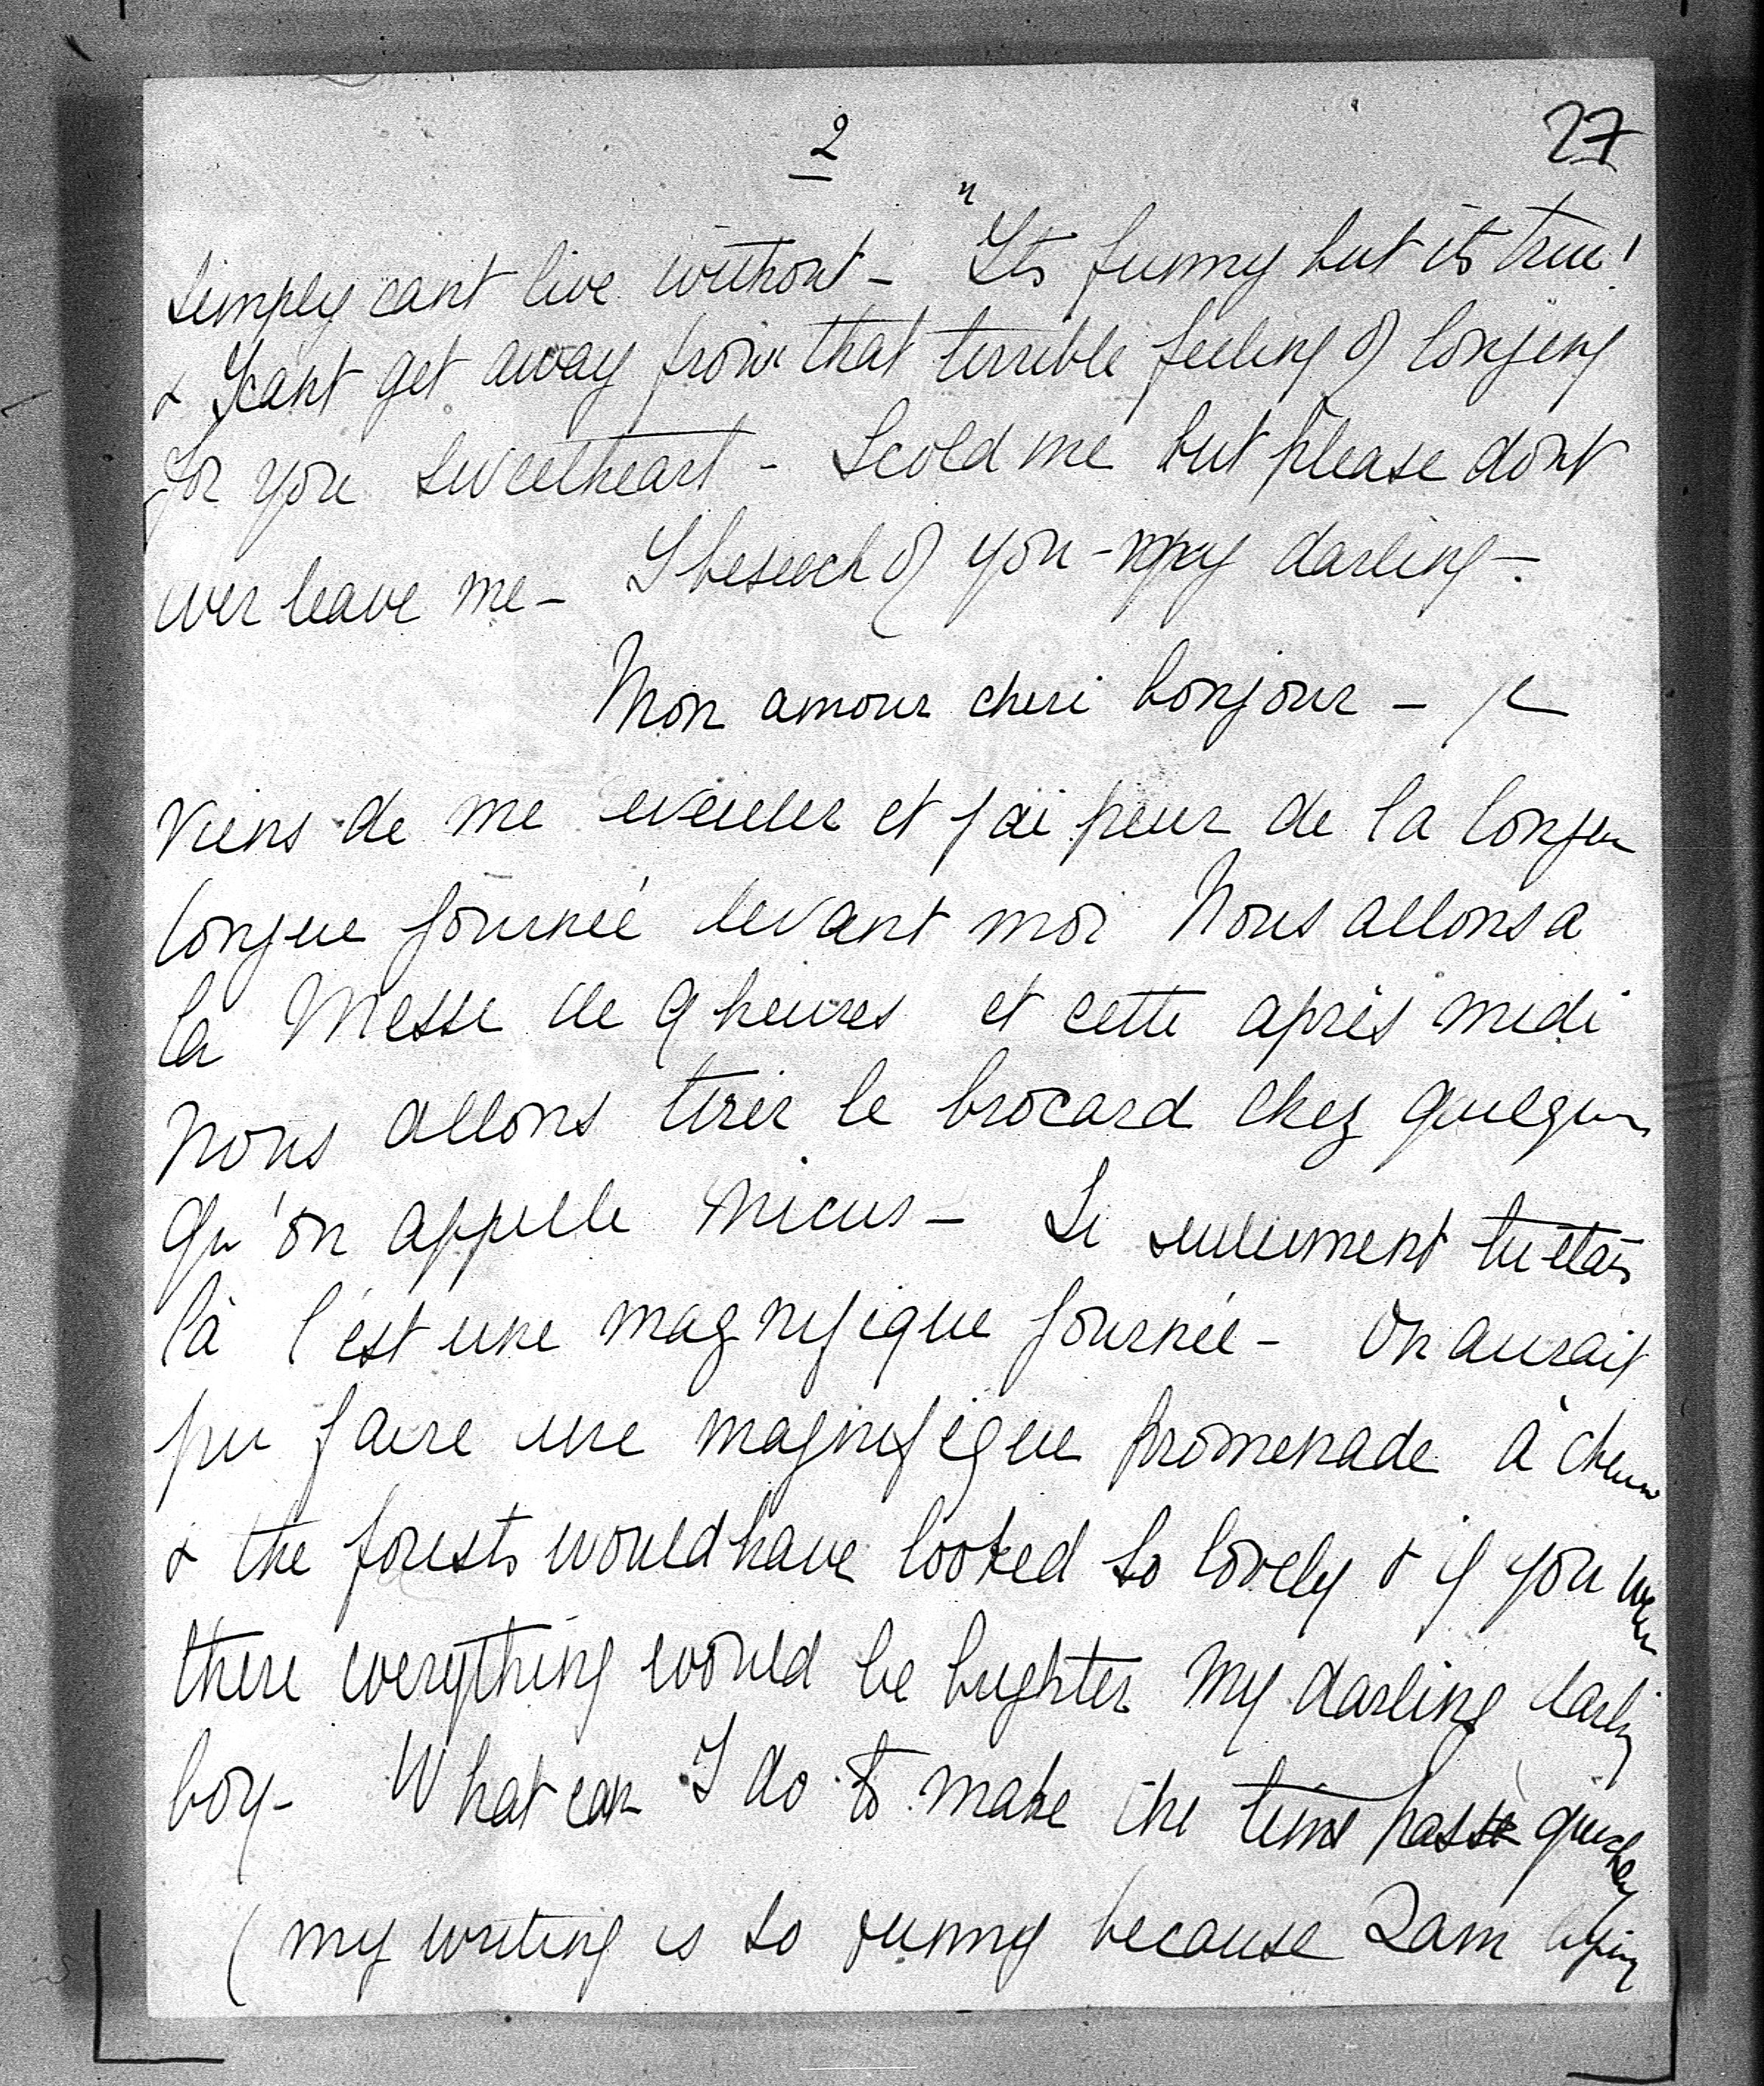 2
27
simply cant live without - "Its funny but its true!
& I cant get away from that terrible feeling of longing
for you sweetheart - Scold me but please dont
ever leave me - I beseech of you - my darling -
Mon amour cheri bonjour - je
viens de me eveiller et j'ai peur de la longue
longue journée devant moi Nous allons a
la Messe de 9 heures et cette après midi
nous allons tirer le brocard chez quelqun
qu'on appelle - Si seulement tu étais
là c'est une magnifique journée - On aurait
pu faire une magnifique promenade à cheval
& the forests would have looked so lovely & if you were
there everything would be brighter my darling darling
boy - What can I do to make the time pass quickly
(my writing is so funny because I am lying